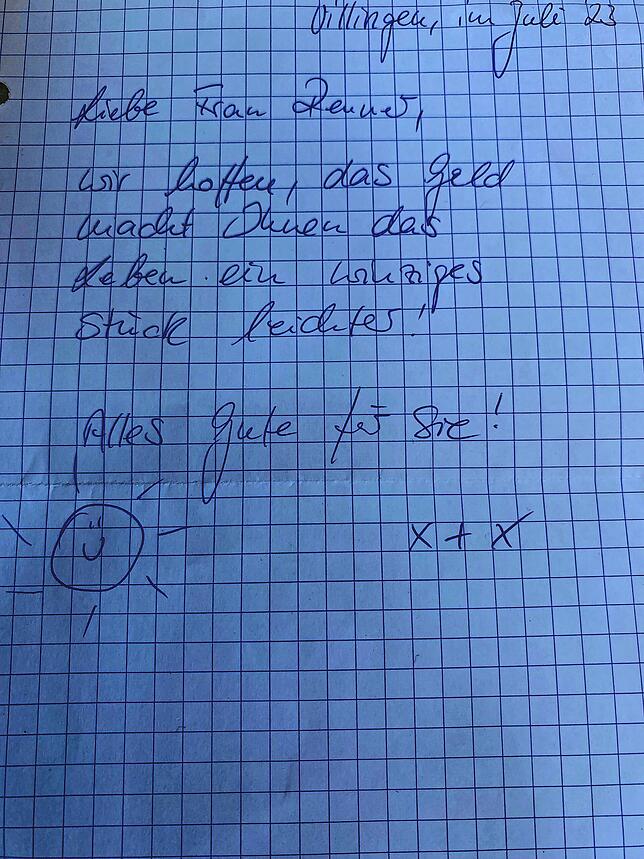 Villingen, im Juli 23
Liebe Frau Renner,
wir hoffen, das Geld
macht Ihnen das
Leben ein winziges
Stück leichter!
Alles Gute für Sie!
X + X